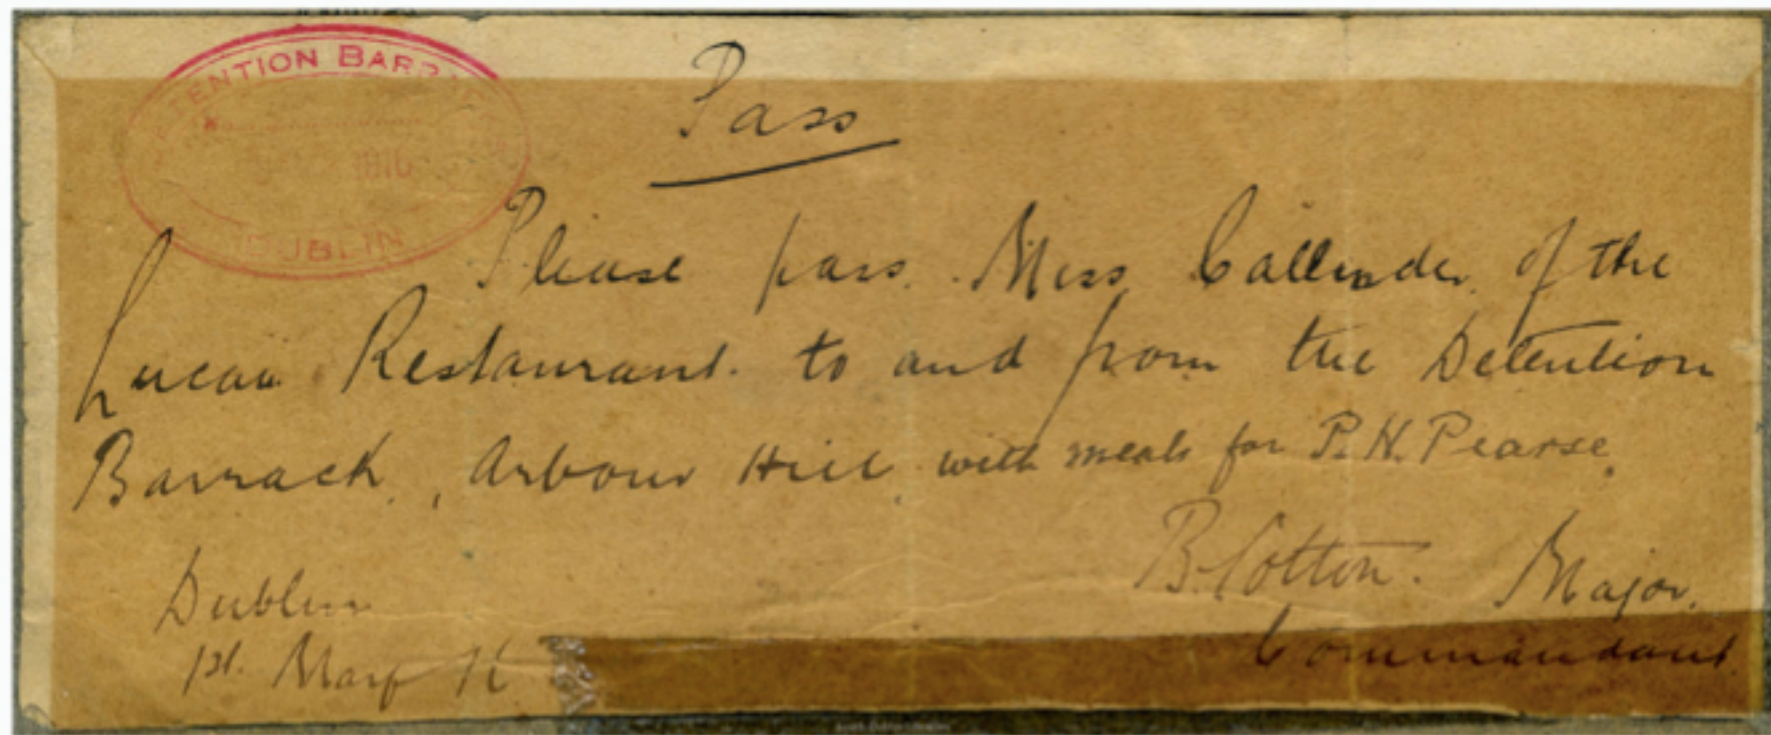 DETENTION BARRACK
1916
DUBLIN
Pass
Please pass Miss Callender of the
Lucan Restaurant. to and from the Detention
Barrack, Arbour Hill, with meals for P. H. Pearse.
B. Cotton. Major.
Commandant
Dublin
1st. May 16